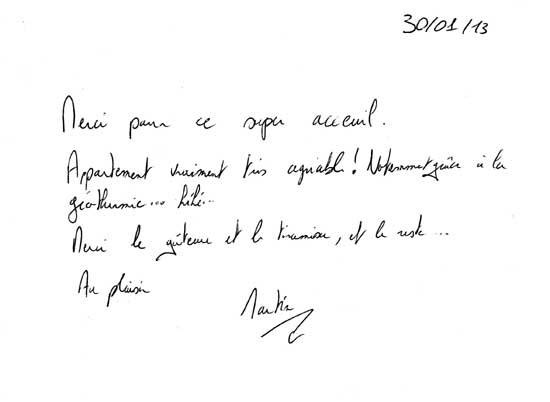 30/01/13
Merci pour ce super acceuil.
Appartement vraiment très agréable! Notemment grâce à la
géothermie... héhé...
Merci le gâteau et le tiramisu, et le reste...
Au plaisir
Martin